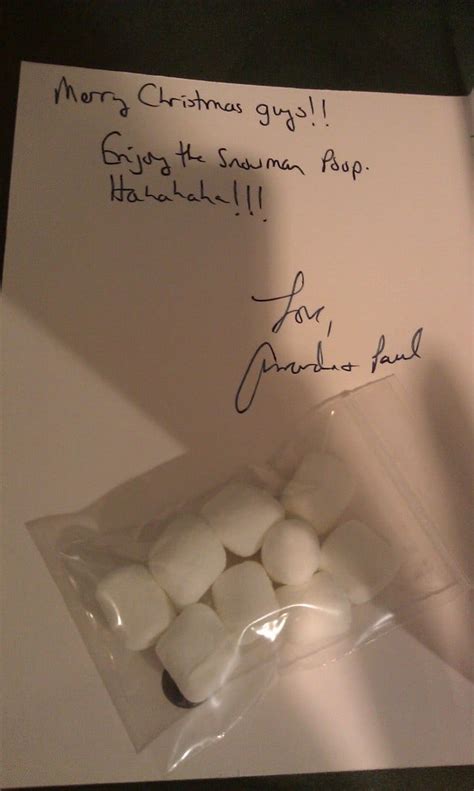 Merry Christmas guys!!
Enjoy the Snowman Poop.
Hahahaha!!!
Love,
Amanda + Paul